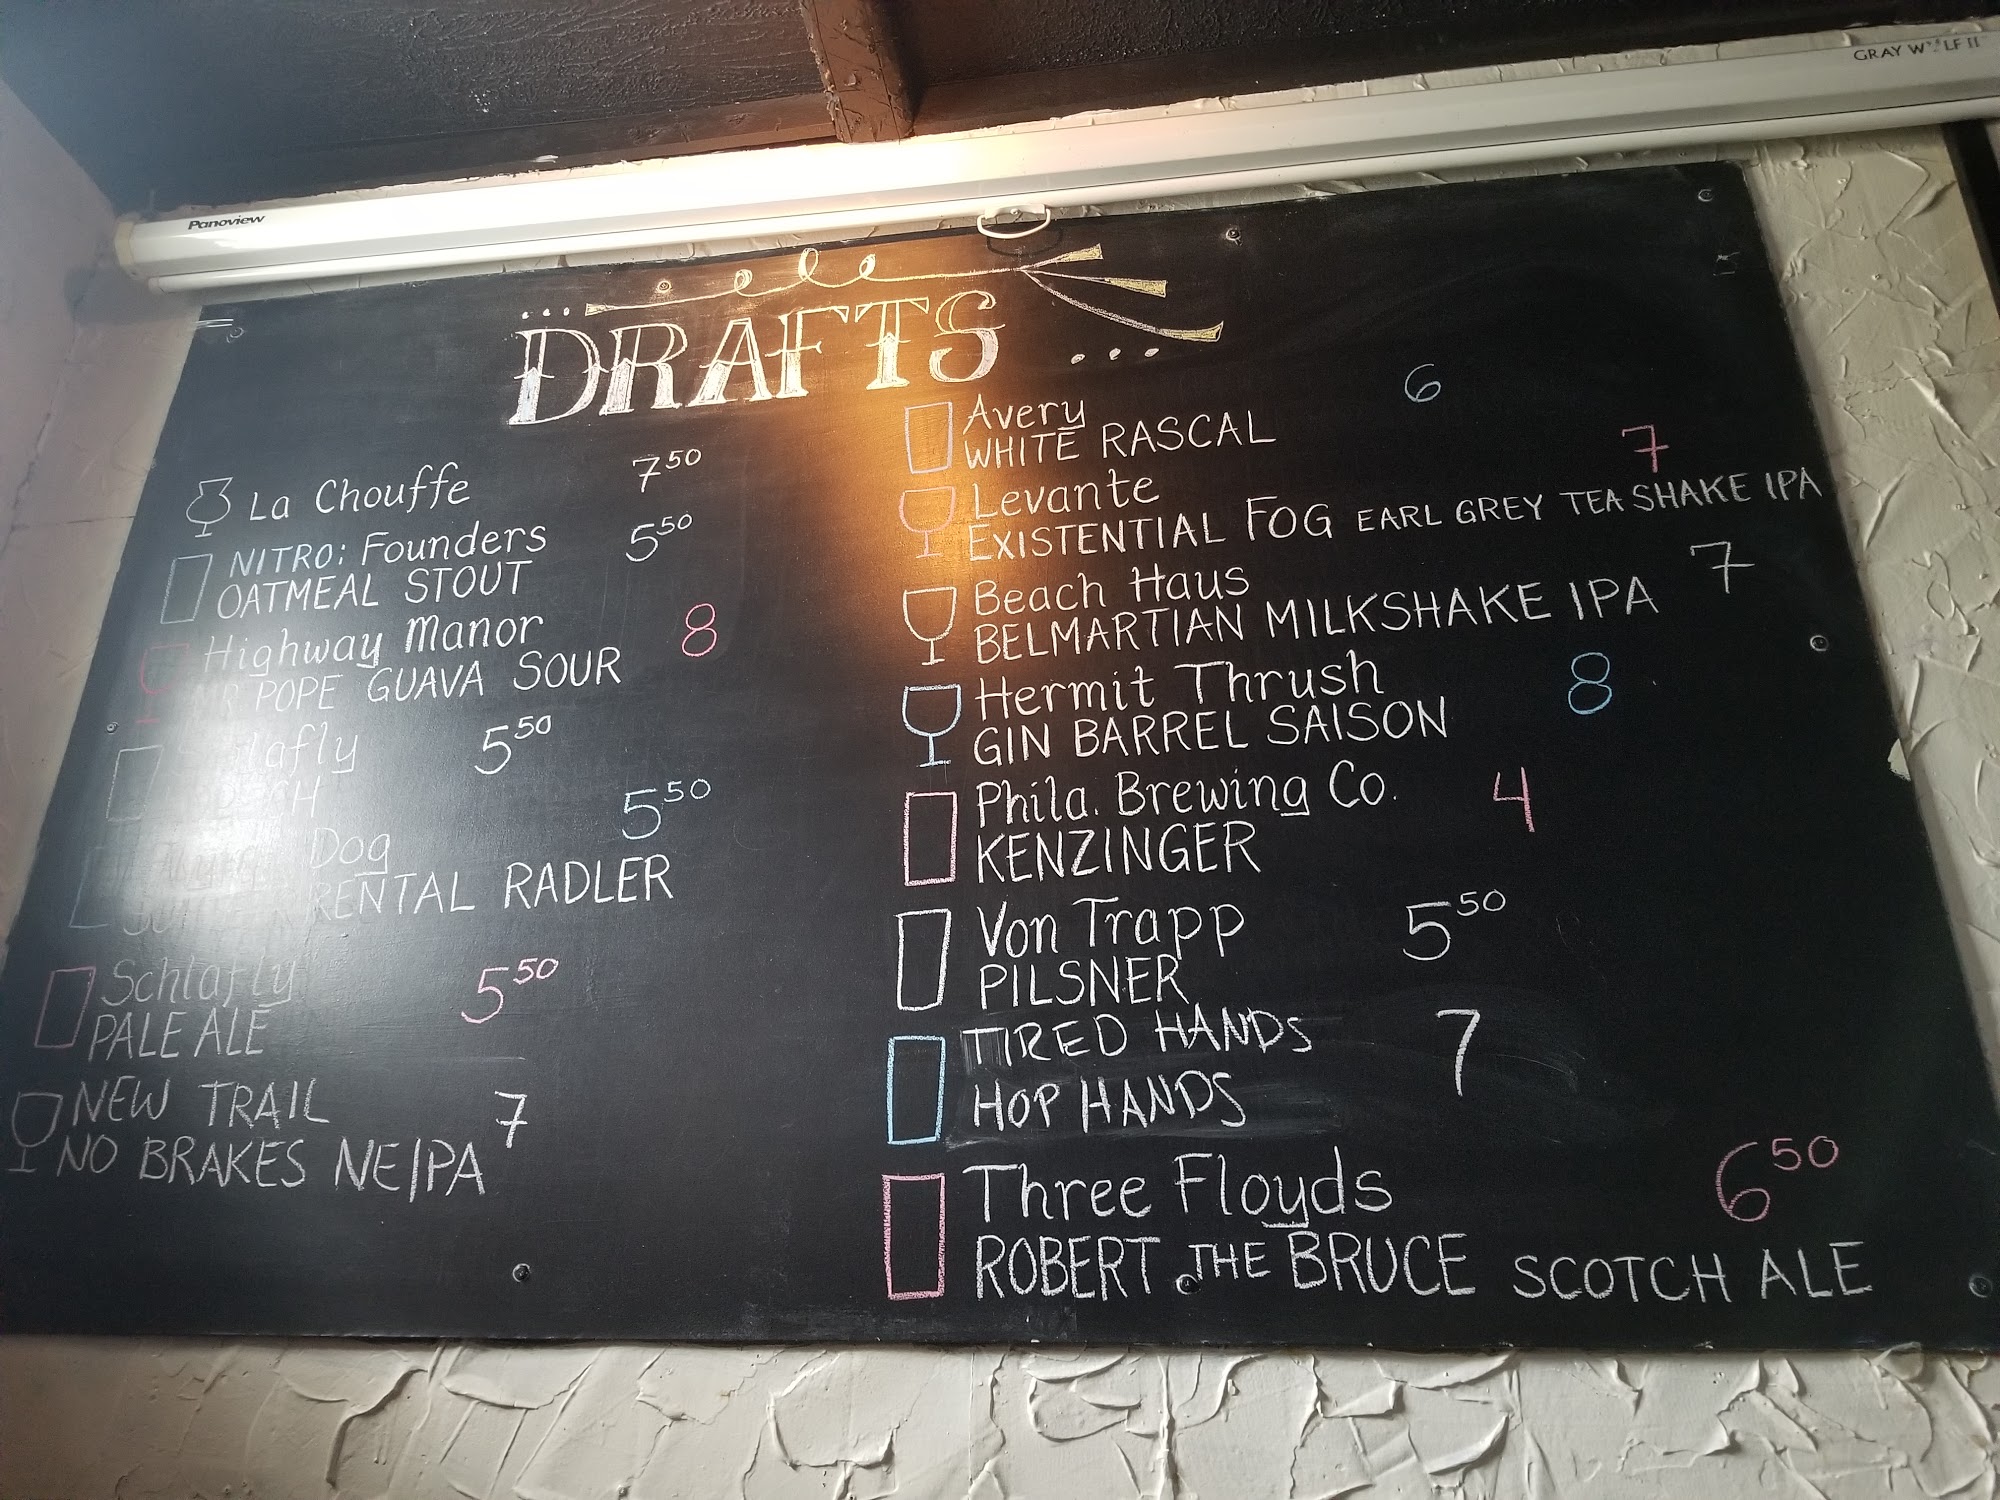 Panoview
GRAY WOLF II
DRAFTS
La Chouffe 7⁵⁰
NITRO: Founders 5⁵⁰
OATMEAL STOUT
Highway Manor 8
POPE GUAVA SOUR
Schlafly 5⁵⁰
Dog 5⁵⁰
RADLER
Schlafly 5⁵⁰
PALE ALE
NEW TRAIL 7
NO BRAKES NEIPA
Avery 6
WHITE RASCAL
Levante 7
EXISTENTIAL FOG EARL GREY TEA SHAKE IPA
Beach Haus 7
BELMARTIAN MILKSHAKE IPA
Hermit Thrush 8
GIN BARREL SAISON
Phila. Brewing Co. 4
KENZINGER
Von Trapp 5⁵⁰
PILSNER
TIRED HANDS 7
HOP HANDS
Three Floyds 6⁵⁰
ROBERT THE BRUCE SCOTCH ALE